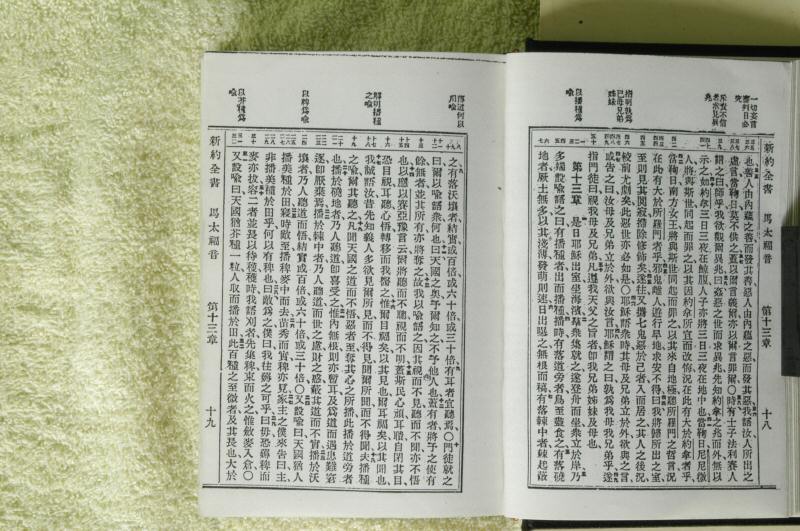 一切妄言審判日必究
斥責不信者求異兆
指明孰爲己母兄弟姊妹
以播種爲喩
新約全書　馬太福音　第十三章　十八
也善人由內蘊之善而發其善惡人由內蘊之惡而發其惡我語汝人所出之
虛言當鞫日莫不供之蓋以爾言義爾亦以爾言罪爾〇時有士子法利賽人
謂之曰師乎我欲觀爾異兆曰姦惡之世而求異兆先知約拿之兆而外無以
示之如約拿三日三夜在鯨腹人子亦將三日三夜在地中也當鞫日尼尼微
人將與斯世同起而罪之以其因約拿所宣而改悔況在此有大於約拿者乎
當鞫日南方女王將與斯世同起而罪之以其來自地極聽所羅門之哲言況
在此有大於所羅門者乎邪鬼離人遊行旱地求安不得曰我將歸所出之室
至則見其閒寂掃除修飾矣遂往又攜七鬼惡於己者入而居之其人之後況
較前尤劇矣此惡世亦必如是〇耶穌語衆時其母及兄弟立於外欲與之言
或告之曰汝母及兄弟立於外欲與汝言耶穌謂之曰孰爲我母我兄弟乎遂
指門徒曰視我母及我兄弟凡遵我天父之旨者卽我兄弟姊妹及母也
第十三章　是日耶穌出室坐海濱羣衆集就之遂登舟而坐衆立於岸乃
多端設喩語之曰有播種者出而播播時有落道旁者鳥至盡食之有落磽
地者厥土無多以其淺薄發萌則速日出暴之無根而稿有落棘中者棘起蔽
解明播種之喩
以稗爲喩
以芥種爲喩
之有落沃壤者結實或百倍或六十倍或三十倍有耳者宜聽焉〇門徒就之
曰爾以喩語衆何也曰天國之奧予爾知之不予他人也蓋有者將予之使有
餘無者並其所有亦將奪之故我以喩語之因其視而不見聽而不聞亦不悟
也以應以賽亞豫言云爾將聽而不聰視而不明蓋斯民心頑耳聵自閉其目
恐目視耳聽心悟轉移而我醫之惟爾目福矣以其見也爾耳福矣以其聞也
我誠語汝昔先知義人多欲見爾所見而不得見聞爾所聞而不得聞夫播種
之喩爾其聽之凡聞天國之道而不悟惡者至奪其心之所播此播於道旁者
也播於磽地者乃人聽道卽喜受之惟內無根則亦暫耳及爲道而遇患難窘
逐卽厭棄焉播於棘中者乃人聽道而世之慮財之惑蔽其道而不實播於沃
壤者乃人聽道而悟結實或百倍或六十倍或三十倍〇又設喩曰天國猶人
播美種於田寢時敵至播稗麥中而去苗秀而實稗亦見家主之僕來告曰主
非播美種於田乎何以有稗也曰敵爲之僕曰我往薅之可乎曰毋恐薅稗而
麥亦拔容二者並長以待穫穫時我語刈者先集稗束而火之惟斂麥入倉〇
又設喩曰天國猶芥種一粒人取而播於田此百種之至微者及其長也大於
新約全書　馬太福音　第十三章　十九